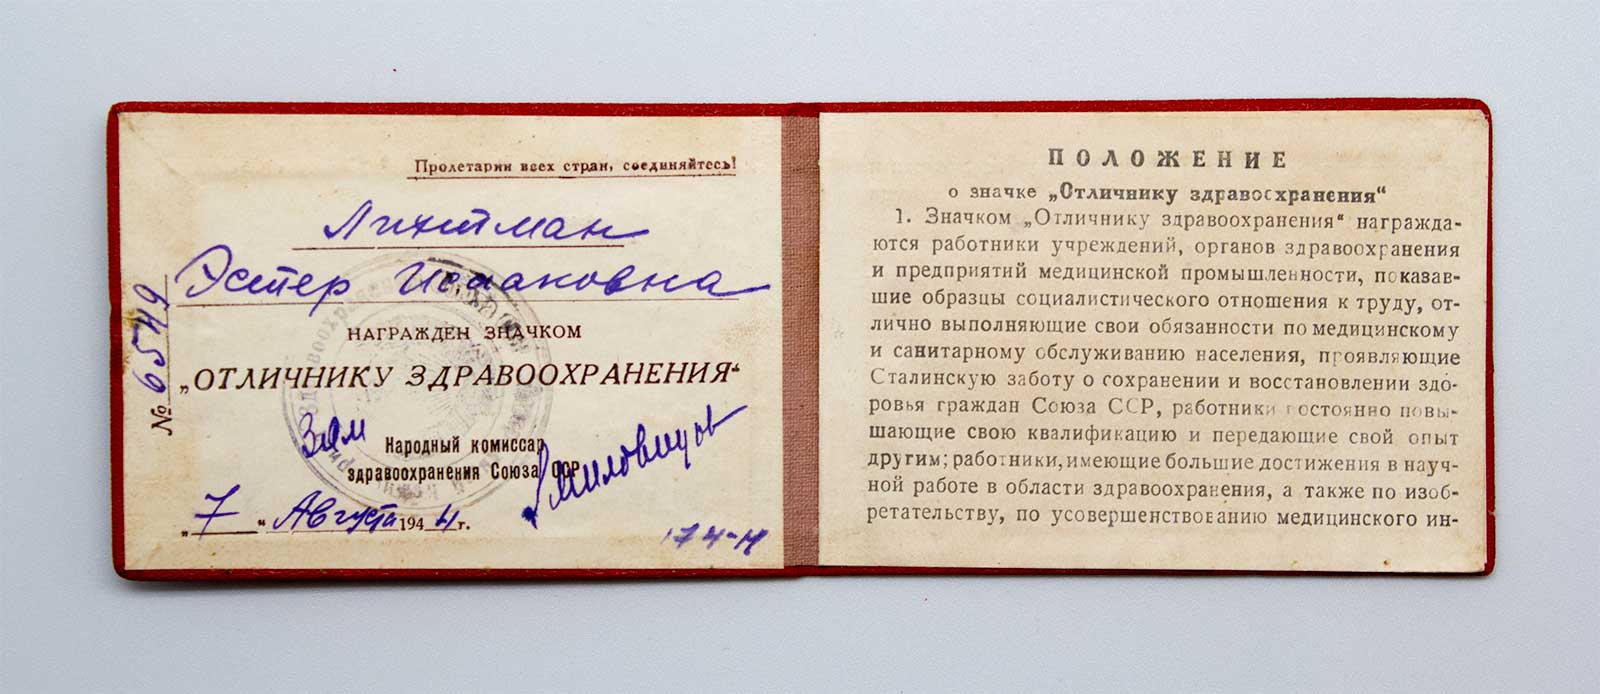 Пролетарии всех стран, соединяйтесь!
Лихтман
Эстер Исааковна
НАГРАЖДЕН ЗНАЧКОМ
„ОТЛИЧНИКУ ЗДРАВООХРАНЕНИЯ“
Зам
Народный комиссар
здравоохранения Союза ССР
„7“ Августа 1944 г.
174-н
№ 6549
ПОЛОЖЕНИЕ
о значке „Отличнику здравоохранения“
1. Значком „Отличнику здравоохранения“ награжда-
ются работники учреждений, органов здравоохранения
и предприятий медицинской промышленности, показав-
шие образцы социалистического отношения к труду, от-
лично выполняющие свои обязанности по медицинскому
и санитарному обслуживанию населения, проявляющие
Сталинскую заботу о сохранении и восстановлении здо-
ровья граждан Союза ССР, работники постоянно повы-
шающие свою квалификацию и передающие свой опыт
другим; работники, имеющие большие достижения в науч-
ной работе в области здравоохранения, а также по изоб-
ретательству, по усовершенствованию медицинского ин-